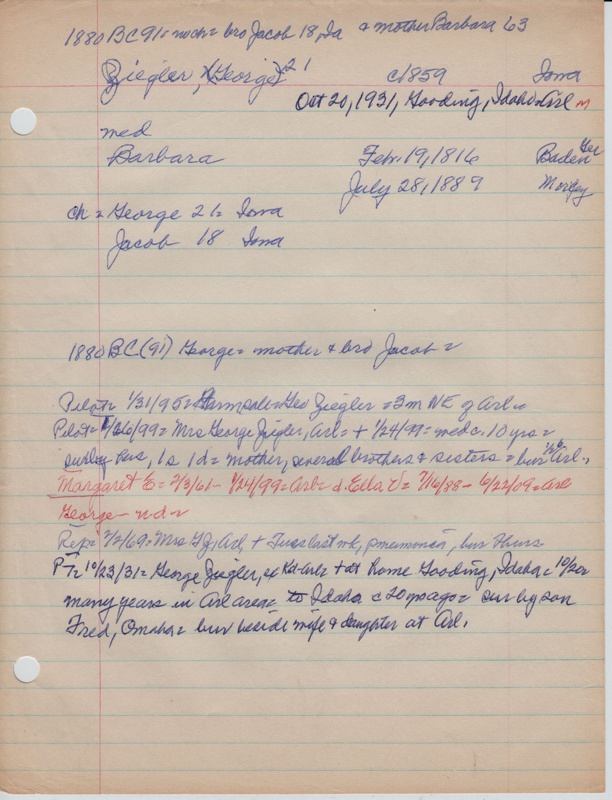 1880 BC 91= no ch= bro Jacob 18, Ia & mother Barbara 63
Ziegler, (George) 21 c1859 Iowa
Oct 20, 1931, Gooding, Idaho=Arl M
med
Barbara Feb. 19, 1816 Baden Ger
July 28, 1889
ch= George 21= Iowa
Jacob 18 Iowa
1880 BC (91) George= mother & bro Jacob=
Pilot= 1/31/95= Geo Ziegler =3m NE of Arl=
Pilot= 1/26/99= Mrs George Ziegler, Arl= + 1/24/99= 10 yrs=
hus, 1s 1d= mother, several brothers & sisters= bur Arl.
Margaret E= 2/3/61- 1/24/99=Arl= d. Ella V= 7/16/88- 6/22/09=Arl
George- n.d.=
Rep= Mrs G Z, Arl, + Tues last wk, pneumonia, bur Thurs.
PT= 10/23/31= George Ziegler, ex + at home Gooding, Idaha= 10/20=
many years in Arl area= to Idaha c20 yrs ago= sur by son
Fred, Omaha= bur beside wife & daughter at Arl.